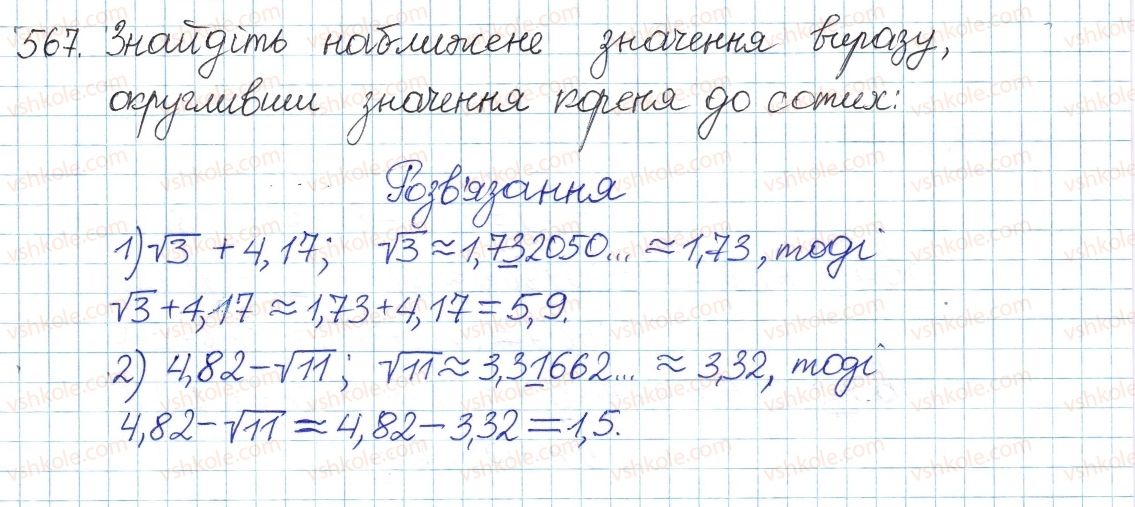 567. Знайдіть наближене значення виразу,
округливши значення кореня до сотих:
Розв'язання
1) √3 + 4,17; √3 ≈ 1,732050... ≈ 1,73, тоді
√3 + 4,17 ≈ 1,73 + 4,17 = 5,9.
2) 4,82 - √11; √11 ≈ 3,31662... ≈ 3,32, тоді
4,82 - √11 ≈ 4,82 - 3,32 = 1,5.